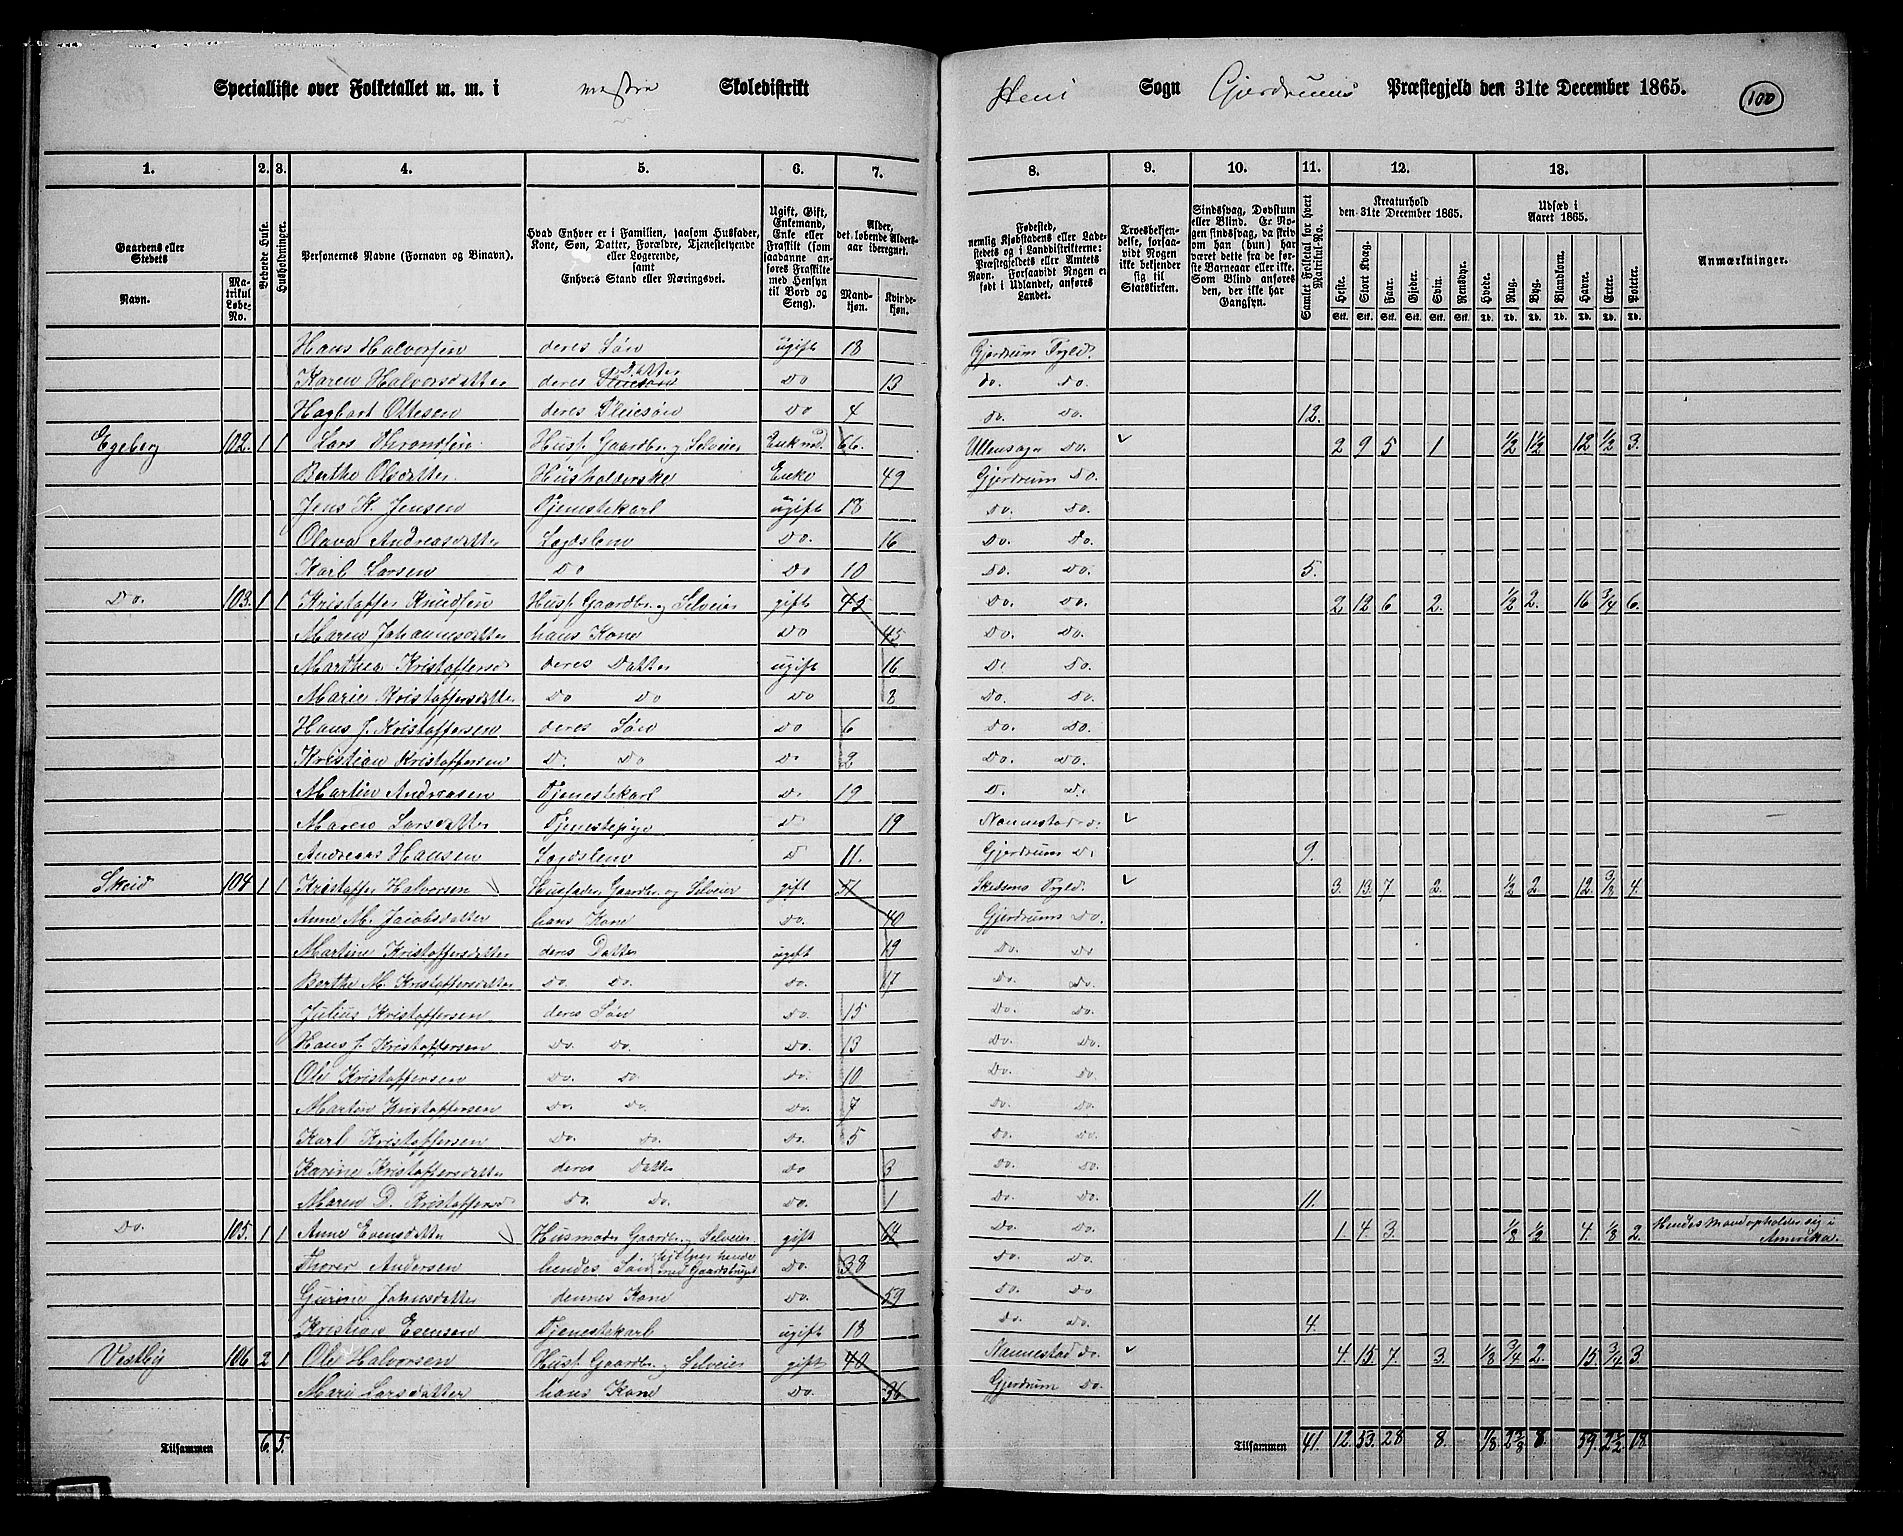 Specialliste over Folketallet m. m. i Skoledistrikt Heni Sogn Gjerdrums Præstegjeld den 31te December 1865. 100
1. 2. 3. 4. 5. 6. 7. 8. 9. 10. 11. 12. 13.
Gaardens eller Stedets
Navn. Matrikul Løbe-No.
Beboede Huse.
Husholdninger.
Personernes Navne (Fornavn og Binavn).
Hvad Enhver er i Familien, saasom Husfader, Kone, Søn, Datter, Forældre, Tjenestetyende eller Logerende, samt Enhvers Stand eller Næringsvei.
Ugift, Gift, Enkemand, Enke eller Fraskilt (som saadanne anføres Fraskilte med Hensyn til Bord og Seng).
Alder, det løbende Aldersaar iberegnet.
Mandkjøn. Kvindekjøn.
Fødested, nemlig Kjøbstadens eller Ladestedets og i Landdistrikterne: Præstegjeldets eller Amtets Navn. Forsaavidt Nogen er født i Udlandet, anføres Landet.
Troesbekjendelse, forsaavidt Nogen ikke bekjender sig til Statskirken.
Sindssvag, Døvstum eller Blind. Er Nogen sindssvag, da skriv om han (hun) har været dette fra de første Barneaar eller ikke. Som Blind anføres den, der ikke har Gangsyn.
Samlet Folketal for hvert Matrikul-No.
Kreaturhold den 31te December 1865.
Heste. Stort Kvæg. Faar. Gjeder. Svin. Rensdyr.
Udsæd i Aaret 1865.
Hvede. Rug. Byg. Blandkorn. Havre. Erter. Poteter.
Anmærkninger.
Hans Halversen deres Søn ugift 18 Gjerdrum Pgld.
Karen Halversdatter deres Datter Do 13 Do. Do.
Hagbart Ottesen deres Pleiesøn Do 4 Do. Do. 12.
Egeberg 102. 1 1 Lars Throndsen Husf. Gaardbr. og Selveier Enkmd 66 Ullensager Do. 2 9 5 1 1/2 1 1/2 12 1/2 3.
Berthe Olsdatter Husholderske Enke 49 Gjerdrum Do.
Jens K. Jensen Tjenestekarl ugift 18 Do. Do.
Olava Andreasdatter Logdslem Do. 16 Do. Do.
Karl Larsen Do Do 10 Do. Do. 5.
Do. 103. 1 1 Kristaffer Knudsen Husf. Gaardbr. og Selveier gift 45 Do. Do. 2 12 6 2. 1/2 2. 16 3/4 6.
Maren Johannesdatter hans Kone Do 45 Do. Do.
Marthea Kristaffersd deres Datter ugift 16 D. Do.
Marie Kristaffersdatter Do Do Do 8 Do. Do.
Hans J. Kristaffersen deres Søn Do 6 Do. Do.
Kristian Kristaffersen D. Do D. 2 Do. Do.
Martin Andreasen Tjenestekarl D. 19 D. D.
Maren Larsdatter Tjenestepige D. 19 Nannestad D.
Andreas Hansen Logdslem D 11. Gjerdrum D. 9.
Skeid 104 1 1 Kristaffer Halvorsen Husfader, Gaardbr. og Selveier gift 51 Skedsmo Pgld. 3. 13. 7 2. 1/2 2. 12. 3/8 4.
Anne M. Jacobsdatter hans Kone Do. 40 Gjerdrum Do.
Martine Kristoffersdatter deres Datter ugift 19 Do. Do
Berthe M. Kristoffersdatter Do. Do. Do. 17 Do. Do.
Julius Kristoffersen deres Søn Do. 15 Do. Do.
Hans J. Kristoffersen Do. Do. Do. 13 Do. Do.
Ole Kristoffersen Do. Do Do. 10 Do. Do.
Martin Kristoffersen Do. Do. Do. 7 Do. Do.
Karl Kristoffersen Do. Do. Do. 5 Do. Do.
Karine Kristoffersdatter deres Datter Do 3 Do. Do.
Maren D. Kristoffersd Do. Do. Do. 1 Do. Do. 11.
Do. 105. 1 1 Anne Evensdatter Husmoder Gaardbr. og Selveier gift 61 Do. Do. 1. 4 3. 1/8 1/2 4. 1/8 2. Hendes Mand opholder sig i Amerika.
Therer Andersen hendes Søn, hjelper hende med Gaardsbruget Do. 38 Do. Do.
Gurine Johnsdatter dennes Kone Do. 59 Do. Do.
Kristian Evensen Tjenestekarl ugift 18 Do. Do. 4.
Vestby 106 2 1 Ole Halvorsen Husf. Gaardbr. og Selveier gift 40 Nannestad Do. 4. 15. 7. 3. 1/8 3/4 2. 15. 3/4 3.
Mari Larsdatter hans Kone Do. 36 Gjerdrum Do.
Tilsammen 6. 5. Tilsammen 41. 12. 53. 28 8. 1/8 8. 59. 18